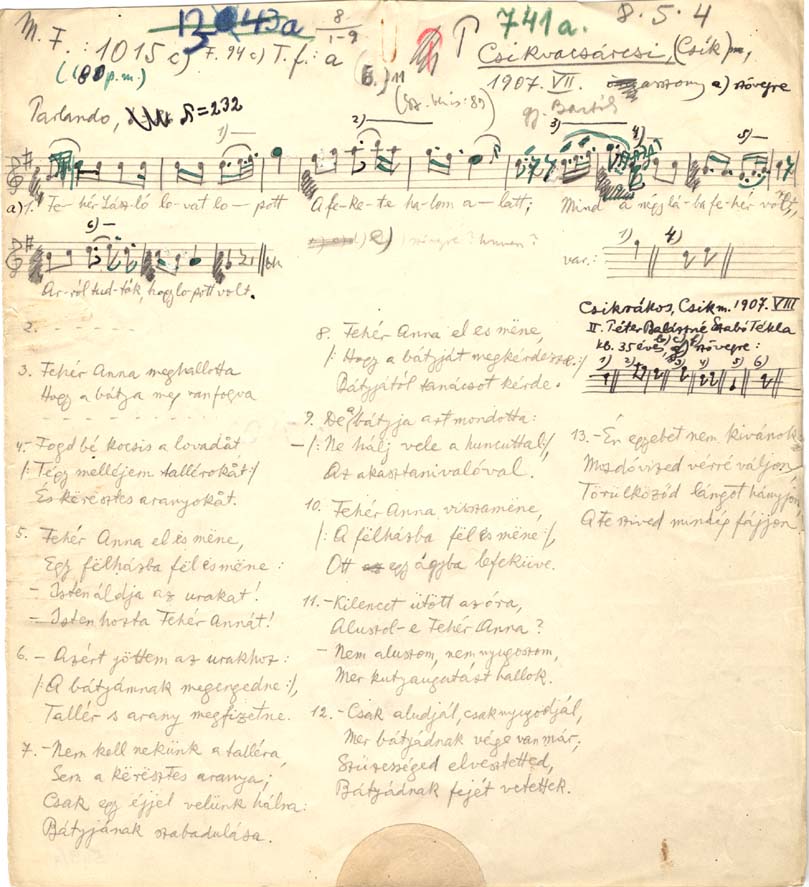 M. F.: 1015 c) F. 94 c) T. f.: a
8
1-9
741a. 8.5.4
Csikvacsárcsi, (Csík) m.,
1907. VII. asszony a) szövegre
gy. Bartók
Parlando, ♪=232
1) 2) 3) 4) 5)
a) 1. Fe-hér Lász-ló lo-vat lo-pott A fe-ke-te ha-lom a-latt; Mind a négy lá-ba fe-hér volt,
6)
Ar-ról tud-ták, hogy lopott volt.
var.: 1) 4)
Csikrákos, Csíkm. 1907. VIII
II. Péter Balázsné Szabó Tékla
kb. 35 éves, szövegre:
1) 2) 3) 4) 5) 6)
2. - - - - - - -
3. Fehér Anna meghallotta
Hogy a bátya meg van fogva
- - - - - - - - - -
4. - Fogd bé kocsis a lovadåt
/: Tégy melléjem tallérokåt :/
És kërësztes aranyokåt.
5. Fehér Anna el es mëne,
Egy félházba fél es mëne:
- Isten áldja az urakat!
- Isten hozta Fehér Annát!
6. - Azért jöttem az urakhoz:
/: A bátyámnak megengedne :/,
Tallér s arany megfizetne.
7. - Nem kell nekünk a talléra
Sem a kërësztes aranya;
Csak egy éjjel velünk hálna:
Bátyjának szabadulása.
8. Fehér Anna el es mëne,
/: Hogy a bátyját megkérdezze :/
Bátyjától tanácsot kérde.
9. De bátyja azt mondotta:
- /: Ne hálj vele a huncuttal :/,
Az akasztanivalóval.
10. Fehér Anna visszamëne,
/: A félházba fél es mëne :/,
Ott egy ágyba lefeküve.
11. - Kilencet ütött az óra,
Aluszol-e Fehér Anna?
- Nem aluszom, nem nyugoszom,
Mer kutyaugatást hallok.
12. - Csak aludjál, csak nyugodjál,
Mer bátyádnak vége van már;
Szüzességed elvesztetted,
Bátyádnak fejét vetettek.
13. - Én egyebet nem kivánok
Mozdóvized vérré váljon
Törülköződ lángot hányjon,
A te szived mindég fájjon!